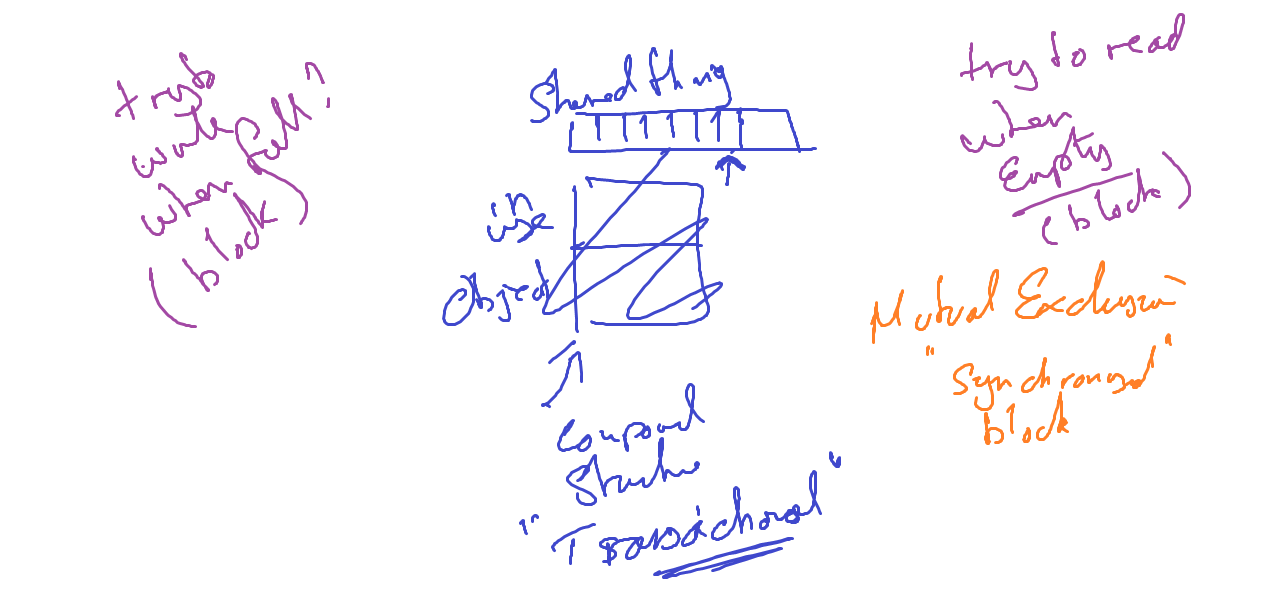 try to
write
when full?
(block)
Shared thing
in
use
Object
compound
Structure
"Transactional"
try to read
when
Empty
(block)
Mutual Exclusion
"Synchronized"
block